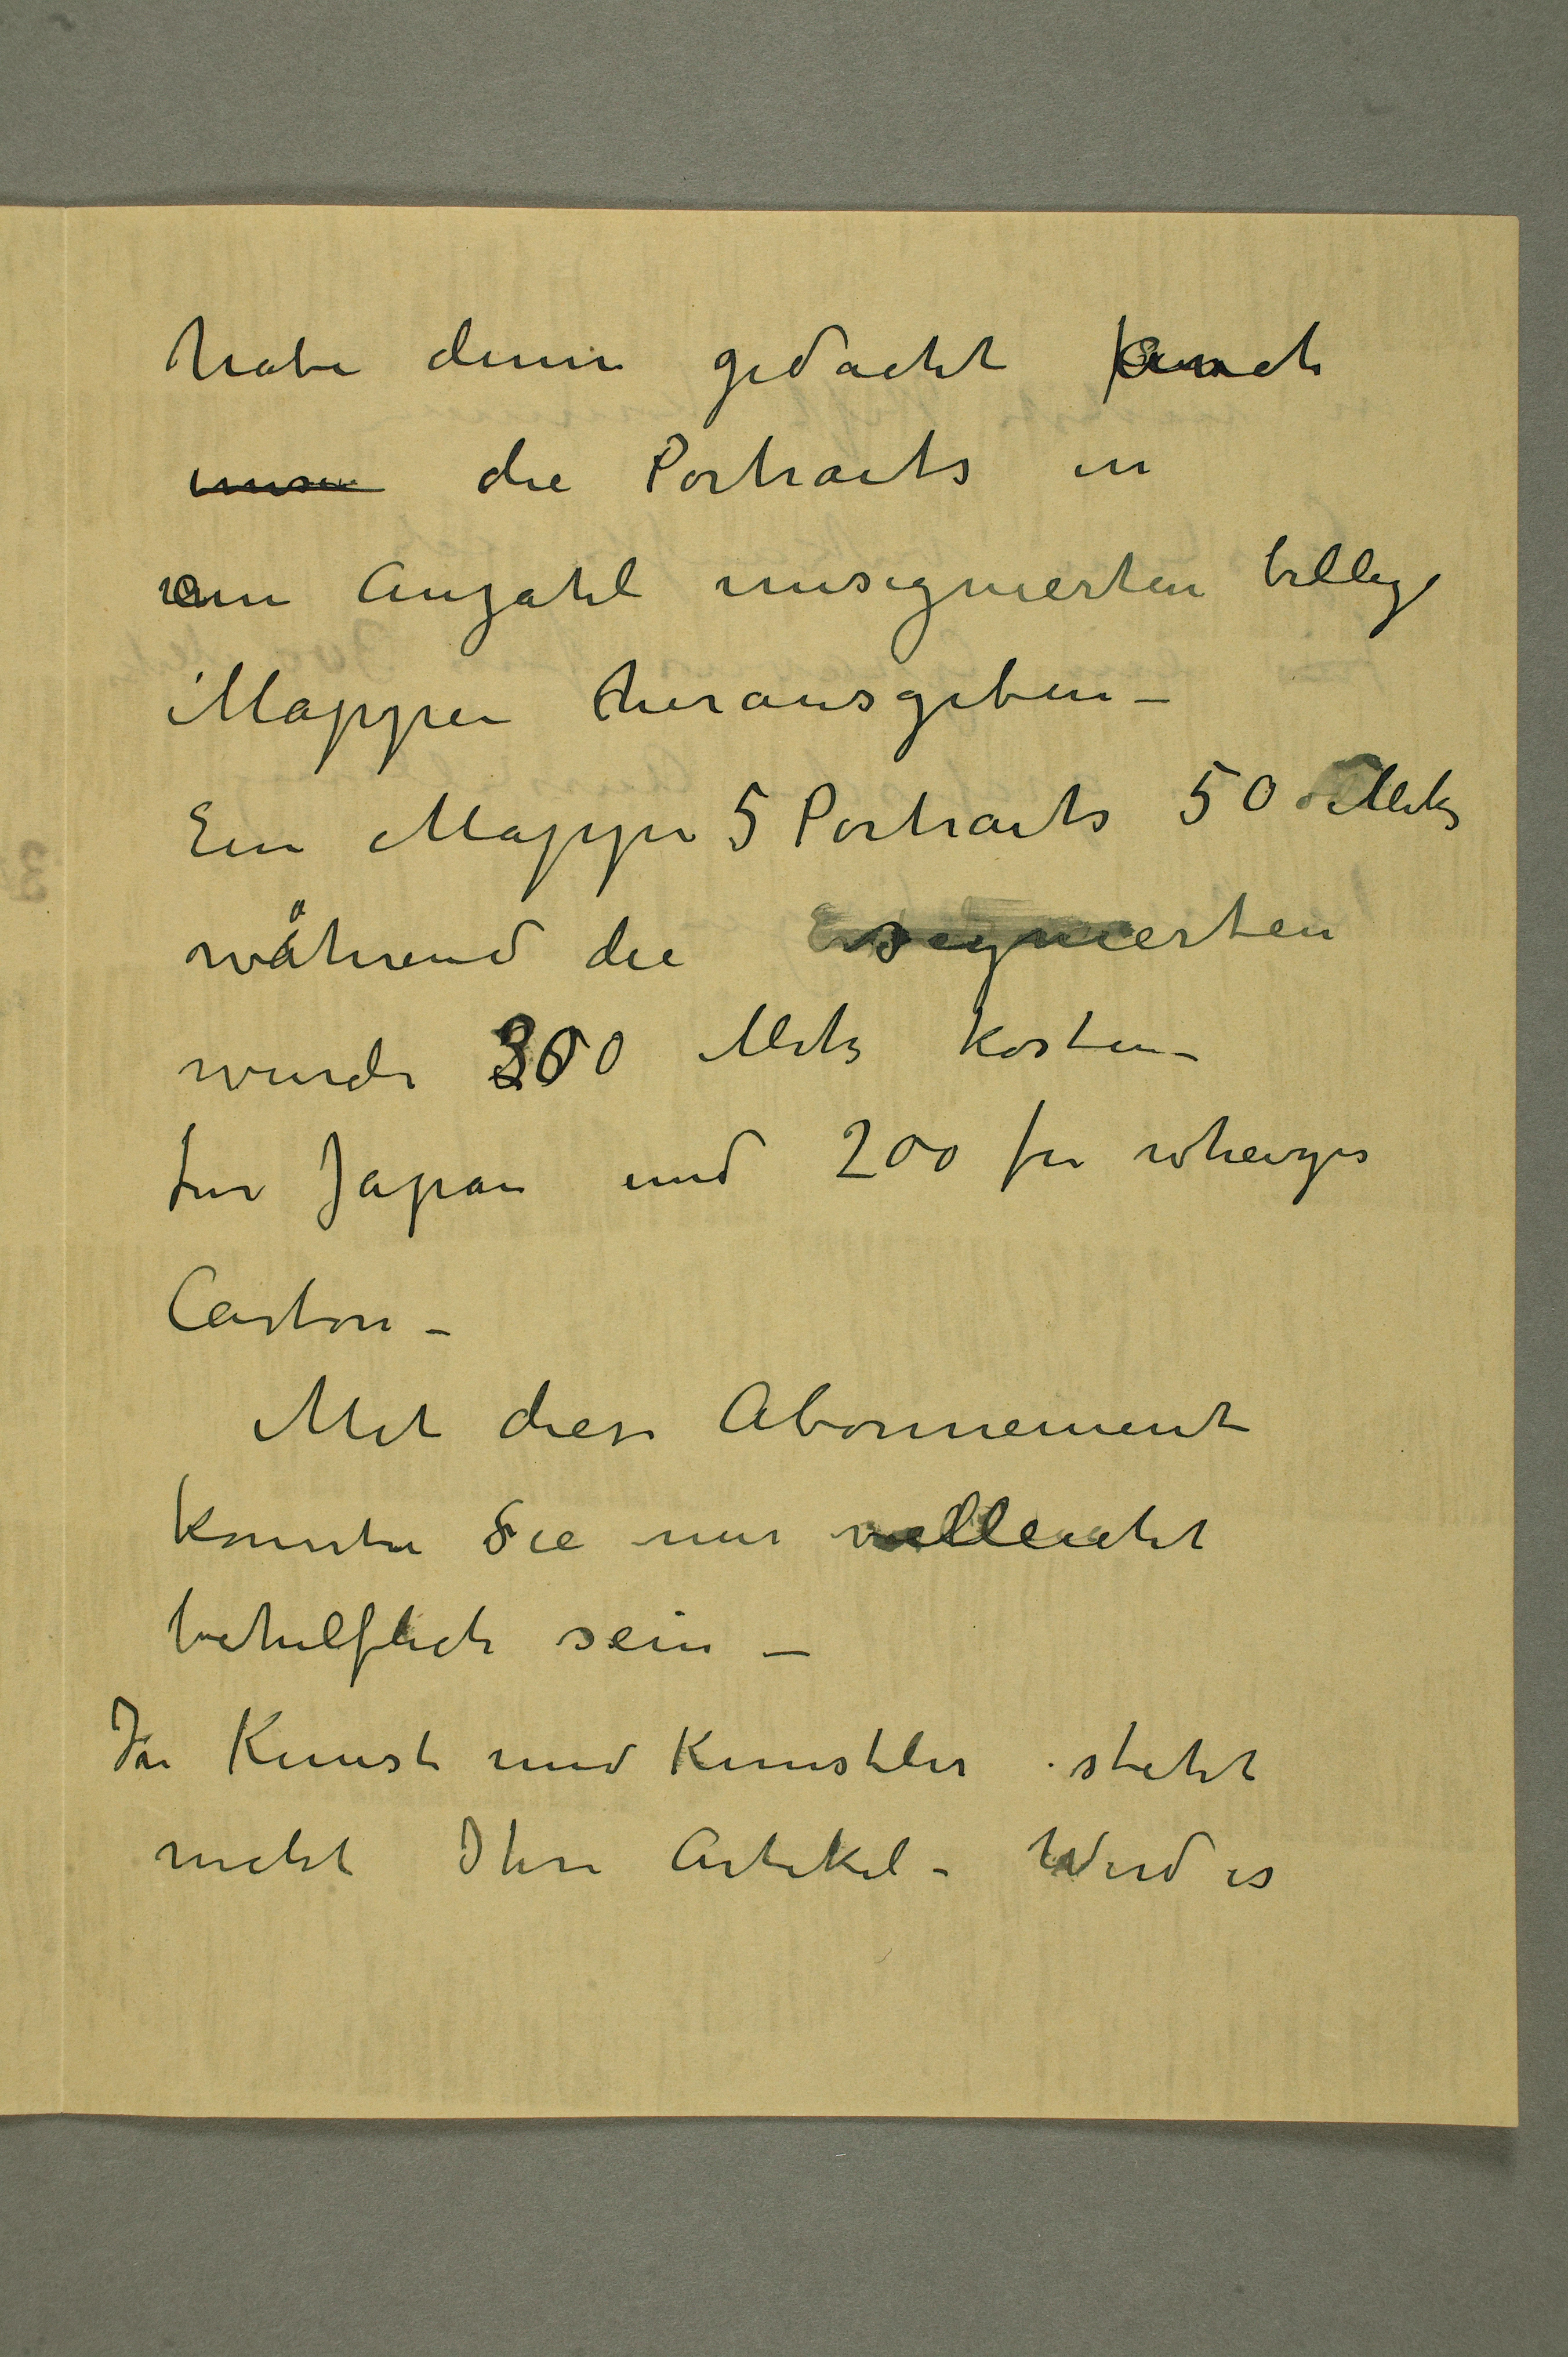 habe denn gedacht auch
die Portraits in
ein Anzahl unsignierten billige
Mappen herausgeben –
Ein Mappe 5 Portraits 50 Mk
während die signierten
wurde 300 Mk kosten –
fur Japan und 200 fur
Carton –
Mit diese Abonnement
konnte Sie mir vielleicht
behilflich sein –
In Kunst und Kunstler steht
nicht Ihre Artikel – Wird es